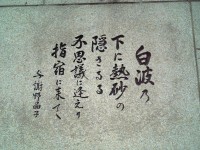 白波の
下に熱砂の
隠さるる
不思議に逢へり
指宿に来て
与謝野晶子